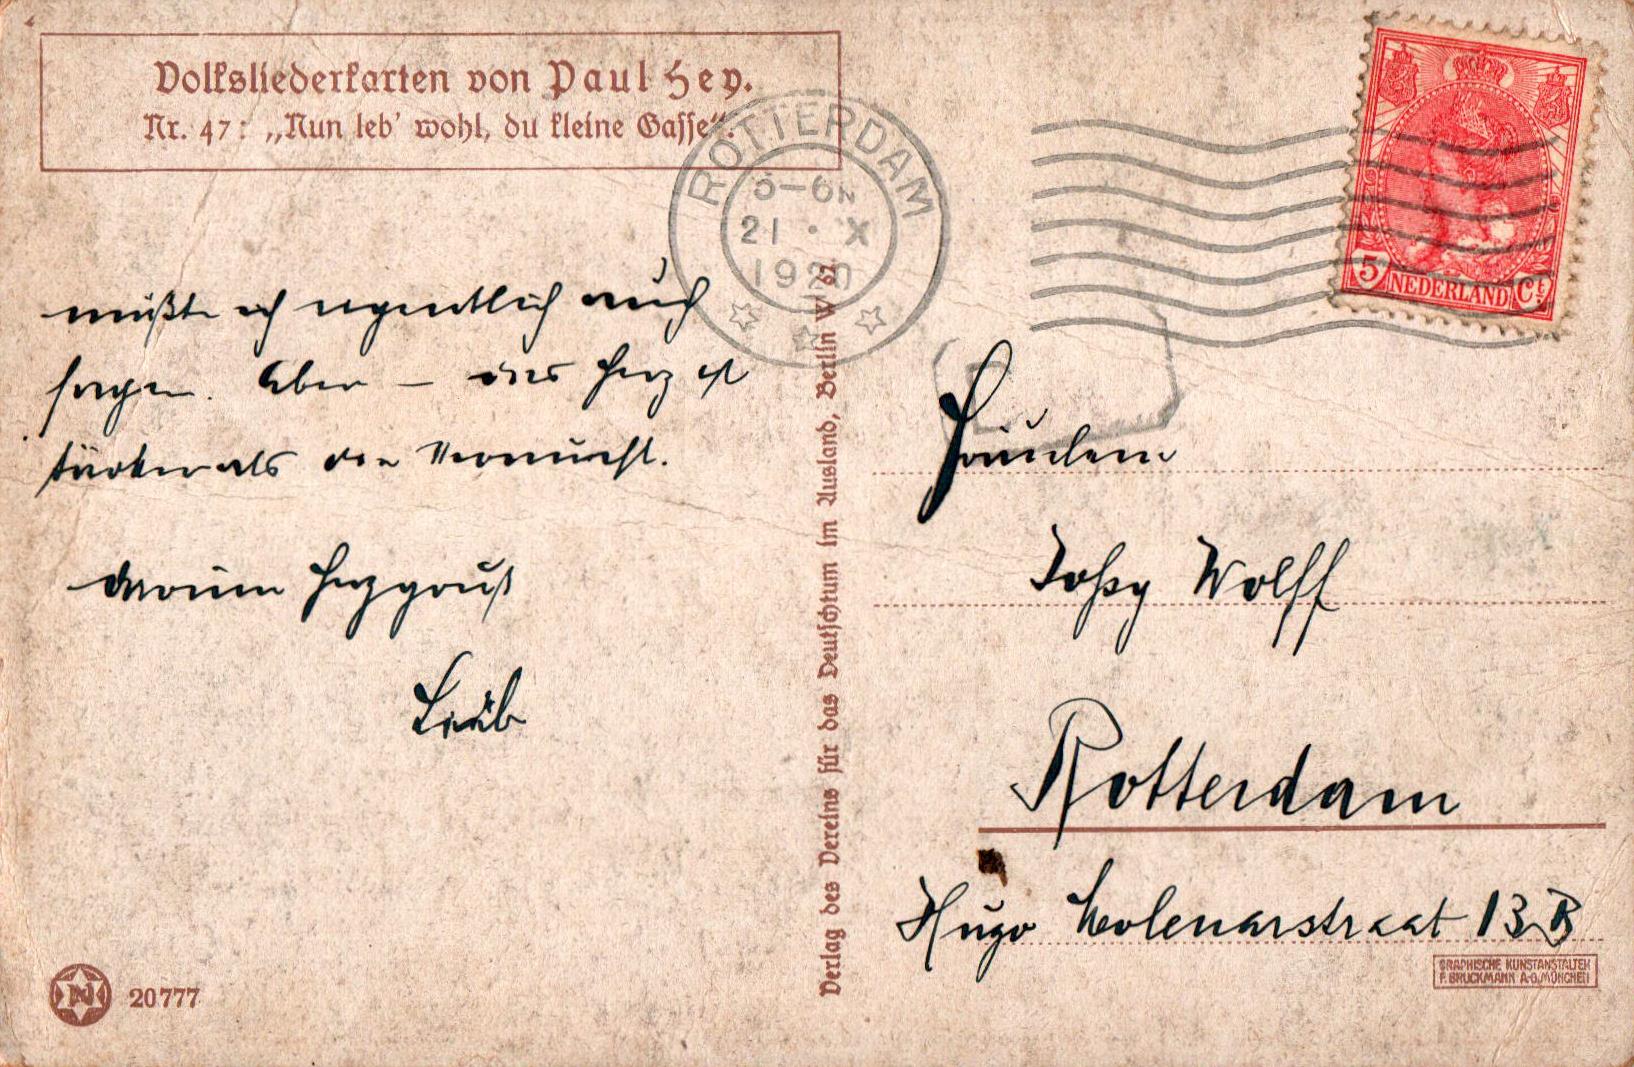 Volksliederkarten von Paul Hey.
Nr. 47: „Nun leb' wohl, du kleine Gasse".
ROTTERDAM
5-6N
21 · X
1920
5 NEDERLAND Ct
müßte ich eigentlich auch
sagen. Aber — das Herz ist
stärker als die Vernunft.
Darum Herzgruß
Fräulein
Jossy Wolff
Rotterdam
Hugo Molenarstraat 13 B
Verlag des Vereins für das Deutschtum im Ausland, Berlin W 62.
N 20777
GRAPHISCHE KUNSTANSTALTEN
F. BRUCKMANN A-G. MÜNCHEN